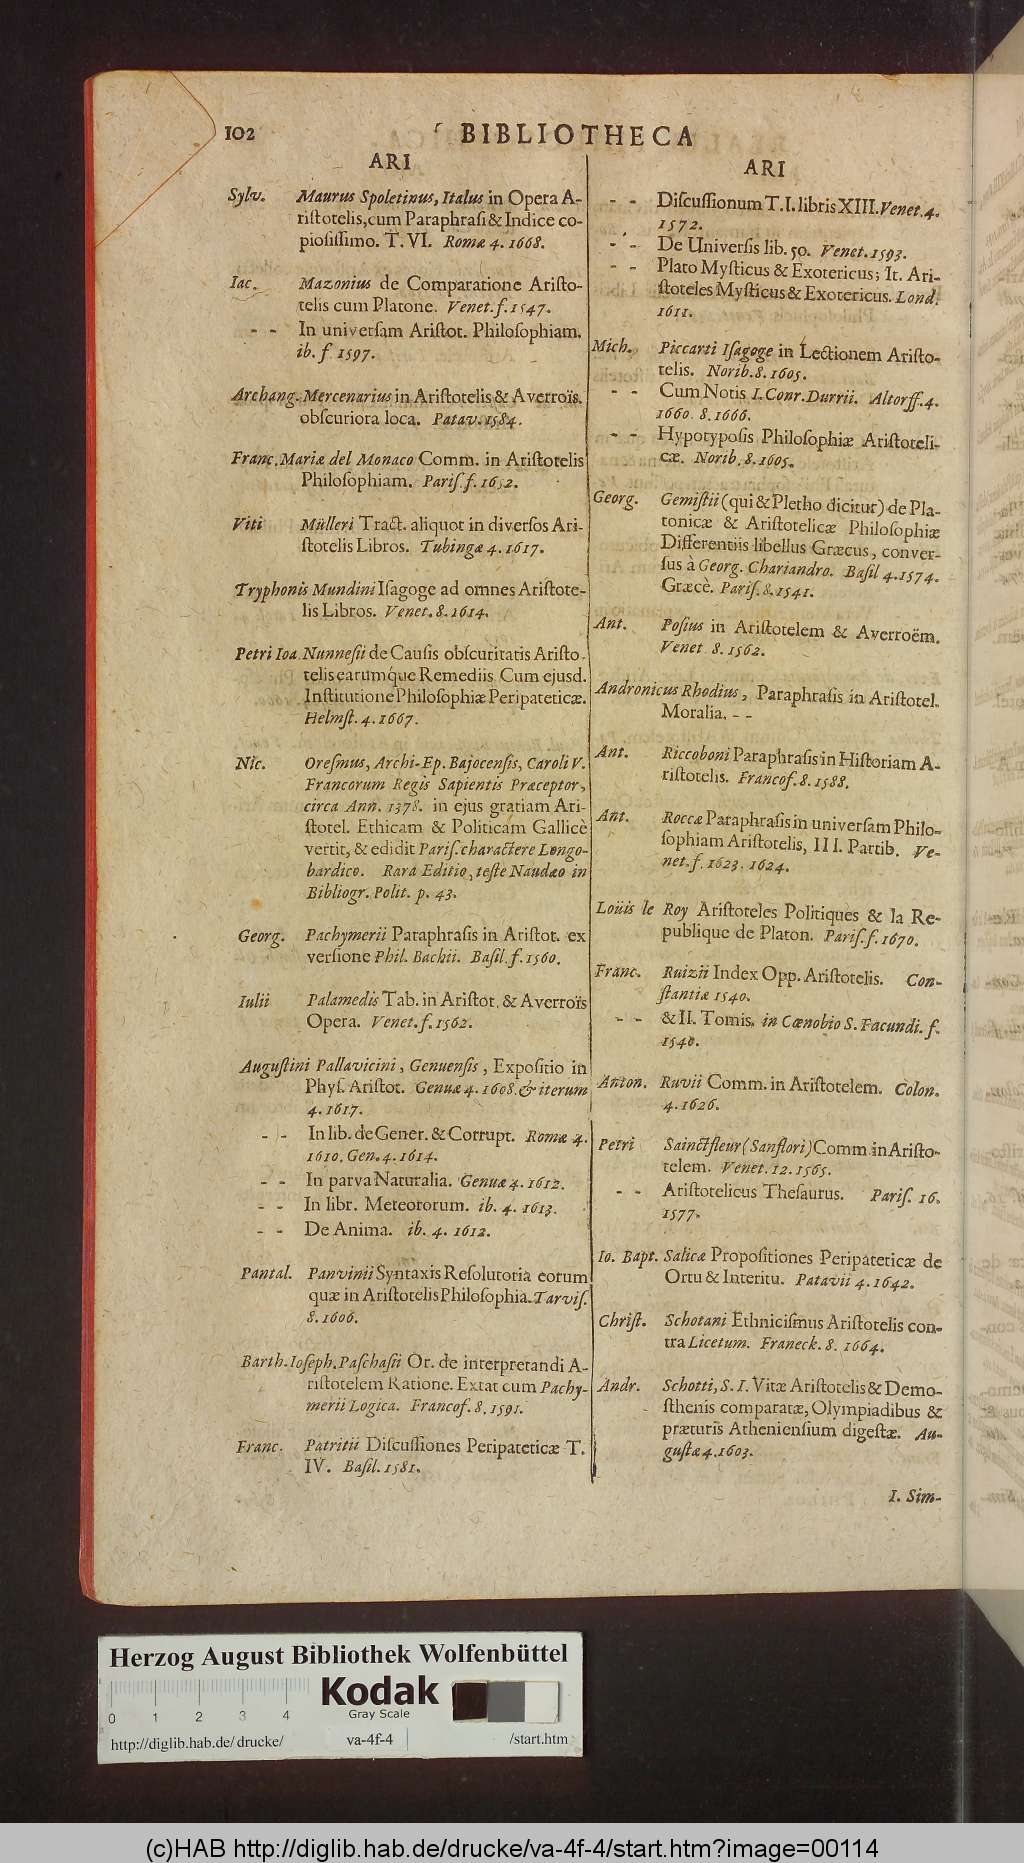 102 BIBLIOTHECA
ARI
Sylv. Maurus Spoletinus, Italus in Opera A-
riſtotelis, cum Paraphraſi & Indice co-
pioſiſſimo. T. VI. Romæ 4. 1668.
Iac. Mazonius de Comparatione Ariſto-
telis cum Platone. Venet. f. 1547.
- - In univerſam Ariſtot. Philoſophiam.
ib. f 1597.
Archang. Mercenarius in Ariſtotelis & Averroïs.
obſcuriora loca. Patav. 1584.
Franc. Mariæ del Monaco Comm. in Ariſtotelis
Philoſophiam. Pariſ. f. 1652.
Viti Mülleri Tract. aliquot in diverſos Ari-
ſtotelis Libros. Tubingæ 4. 1617.
Tryphonis Mundini Iſagoge ad omnes Ariſtote-
lis Libros. Venet. 8. 1614.
Petri Ioa. Nunneſii de Cauſis obſcuritatis Ariſto-
telis earumque Remediis Cum ejusd.
Inſtitutione Philoſophiæ Peripateticæ.
Helmſt. 4. 1667.
Nic. Oreſmus, Archi-Ep. Bajocenſis, Caroli V.
Francorum Regis Sapientis Præceptor,
circa Ann. 1378. in ejus gratiam Ari-
ſtotel. Ethicam & Politicam Gallicè
vertit, & edidit Pariſ. charactere Longo-
bardico. Rara Editio, teſte Naudæo in
Bibliogr. Polit. p. 43.
Georg. Pachymerii Paraphraſis in Ariſtot. ex
verſione Phil. Bachii. Baſil. f. 1560.
Iulii Palamedis Tab. in Ariſtot. & Averroïs
Opera. Venet. f. 1562.
Auguſtini Pallavicini, Genuenſis, Expoſitio in
Phyſ. Ariſtot. Genuæ 4. 1608. & iterum
4. 1617.
- - In lib. de Gener. & Corrupt. Romæ 4.
1610. Gen. 4. 1614.
- - In parva Naturalia. Genuæ 4. 1612.
- - In libr. Meteororum. ib. 4. 1613.
- - De Anima. ib. 4. 1612.
Pantal. Panvinii Syntaxis Reſolutoria eorum
quæ in Ariſtotelis Philoſophia. Tarviſ.
8. 1606.
Barth. Ioſeph. Paſchaſii Or. de interpretandi A-
riſtotelem Ratione. Extat cum Pachy-
merii Logica. Francof. 8. 1591.
Franc. Patritii Diſcuſſiones Peripateticæ T.
IV. Baſil. 1581.
ARI
- - Diſcuſſionum T. I. libris XIII. Venet. 4.
1572.
- - De Univerſis lib. 50. Venet. 1593.
- - Plato Myſticus & Exotericus; It. Ari-
ſtoteles Myſticus & Exotericus. Lond.
1611.
Mich. Piccarti Iſagoge in Lectionem Ariſto-
telis. Norib. 8. 1605.
- - Cum Notis I. Conr. Durrii. Altorff. 4.
1660. 8. 1666.
- - Hypotypoſis Philoſophiæ Ariſtoteli-
cæ. Norib. 8. 1605.
Georg. Gemiſtii (qui & Pletho dicitur) de Pla-
tonicæ & Ariſtotelicæ Philoſophiæ
Differentiis libellus Græcus, conver-
ſus à Georg. Chariandro. Baſil 4. 1574.
Græcè. Pariſ. 8. 1541.
Ant. Poſius in Ariſtotelem & Averroëm.
Venet 8. 1562.
Andronicus Rhodius, Paraphraſis in Ariſtotel.
Moralia. - -
Ant. Riccoboni Paraphraſis in Hiſtoriam A-
riſtotelis. Francof. 8. 1588.
Ant. Roccæ Paraphraſis in univerſam Philo-
ſophiam Ariſtotelis, III. Partib. Ve-
net. f. 1623. 1624.
Loüis le Roy Ariſtoteles Politiques & la Re-
publique de Platon. Pariſ. f. 1670.
Franc. Ruizii Index Opp. Ariſtotelis. Con-
ſtantiæ 1540.
- - & II. Tomis. in Cœnobio S. Facundi. f.
1540.
Anton. Ruvii Comm. in Ariſtotelem. Colon.
4. 1626.
Petri Sainctfleur (Sanflori) Comm in Ariſto-
telem. Venet. 12. 1565.
- - Ariſtotelicus Theſaurus. Pariſ. 16.
1577.
Io. Bapt. Salicæ Propoſitiones Peripateticæ de
Ortu & Interitu. Patavii 4. 1642.
Chriſt. Schotani Ethniciſmus Ariſtotelis con-
tra Licetum. Franeck. 8. 1664.
Andr. Schotti, S. I. Vitæ Ariſtotelis & Demo-
ſthenis comparatæ, Olympiadibus &
præturis Athenienſium digeſtæ. Au-
guſtæ 4. 1603.
I. Sim-
Herzog August Bibliothek Wolfenbüttel
Kodak
Gray Scale
0 1 2 3 4
http://diglib.hab.de/drucke/ va-4f-4 /start.htm
(c)HAB http://diglib.hab.de/drucke/va-4f-4/start.htm?image=00114